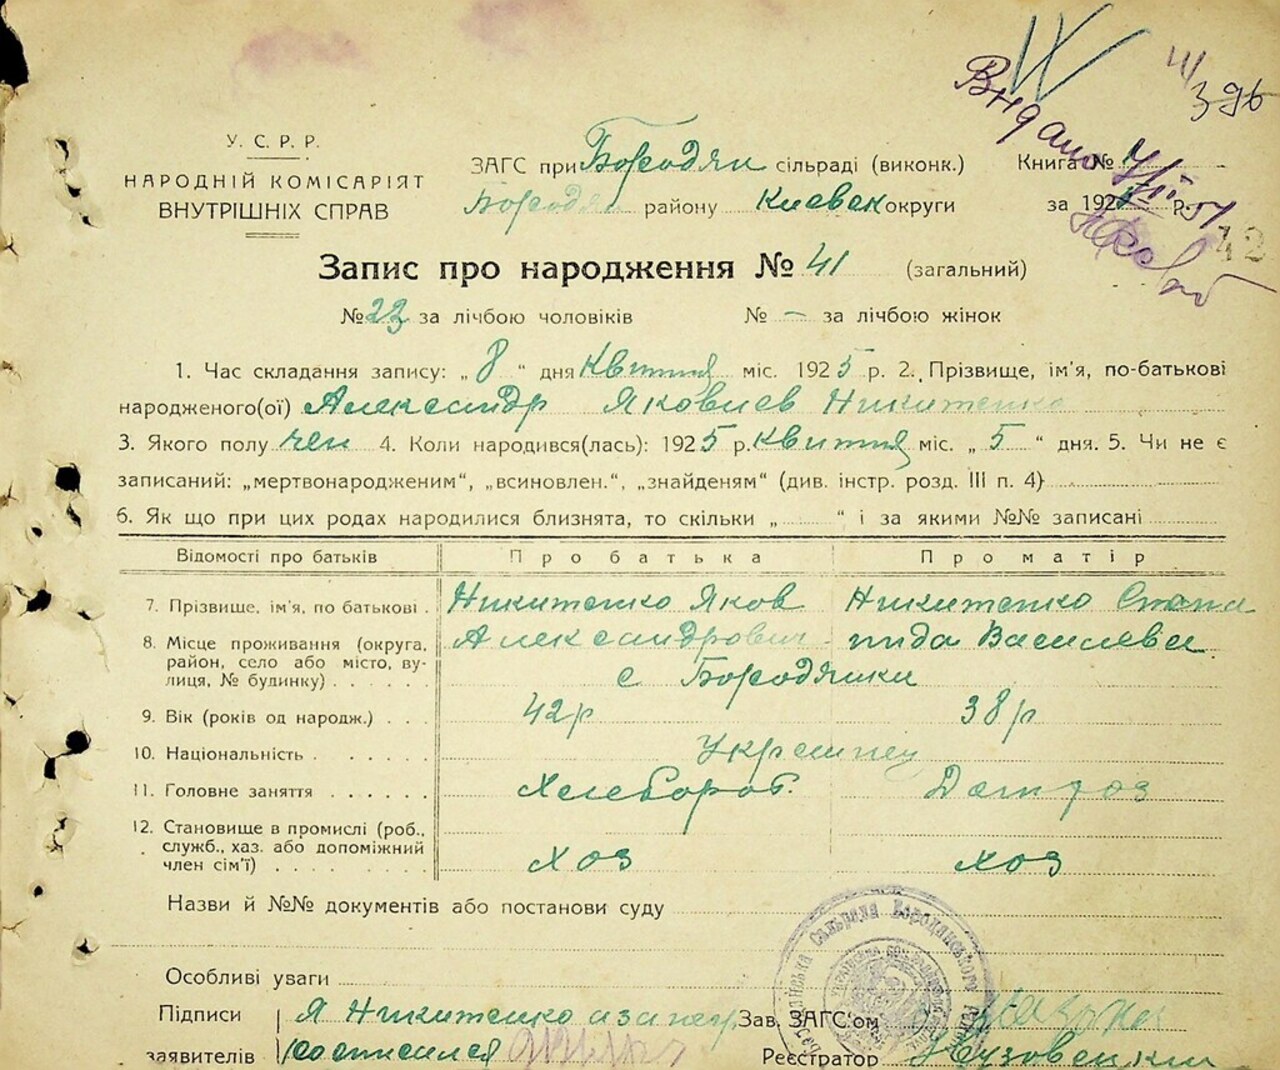 У. С. Р. Р.
НАРОДНІЙ КОМІСАРІЯТ
ВНУТРІШНІХ СПРАВ
ЗАГС при Бородян сільраді (виконк.)
Бородян району Киевск округи
Книга №
за 192 р.
Видано
396
42
Запис про народження № 41 (загальний)
№ 22 за лічбою чоловіків № – за лічбою жінок
1. Час складання запису: „ 8 “ дня Квитня міс. 1925 р. 2. Прізвище, ім'я, по-батькові
народженого(ої) Александр Яковлев Никитенко
3. Якого полу чел 4. Коли народився(лась): 1925 р. Квитня міс. „ 5 “ дня. 5. Чи не є
записаний: „мертвонародженим“, „всиновлен.“, „знайденям“ (див. інстр. розд. III п. 4)
6. Як що при цих родах народилися близнята, то скільки „ “ і за якими №№ записані
Відомості про батьків Про батька Про матір
7. Прізвище, ім'я, по батькові . Никитенко Яков Никитенко Степа
Александрович нида Василевна
8. Місце проживання (округа, район, село або місто, вулиця, № будинку) . . . . . с Бородянки
9. Вік (років од народж.) . . . 42р 38р
10. Національність . . . . . . Украинец
11. Головне заняття . . . . . . Хлебороб.
12. Становище в промислі (роб., служб., хаз. або допоміжний член сім'ї) . . . . . . . хоз хоз
Назви й №№ документів або постанови суду
Особливі уваги
Підписи Я Никитенко Зав. ЗАГС'ом
заявителів росписился Реєстратор
Сільрада Бородянського